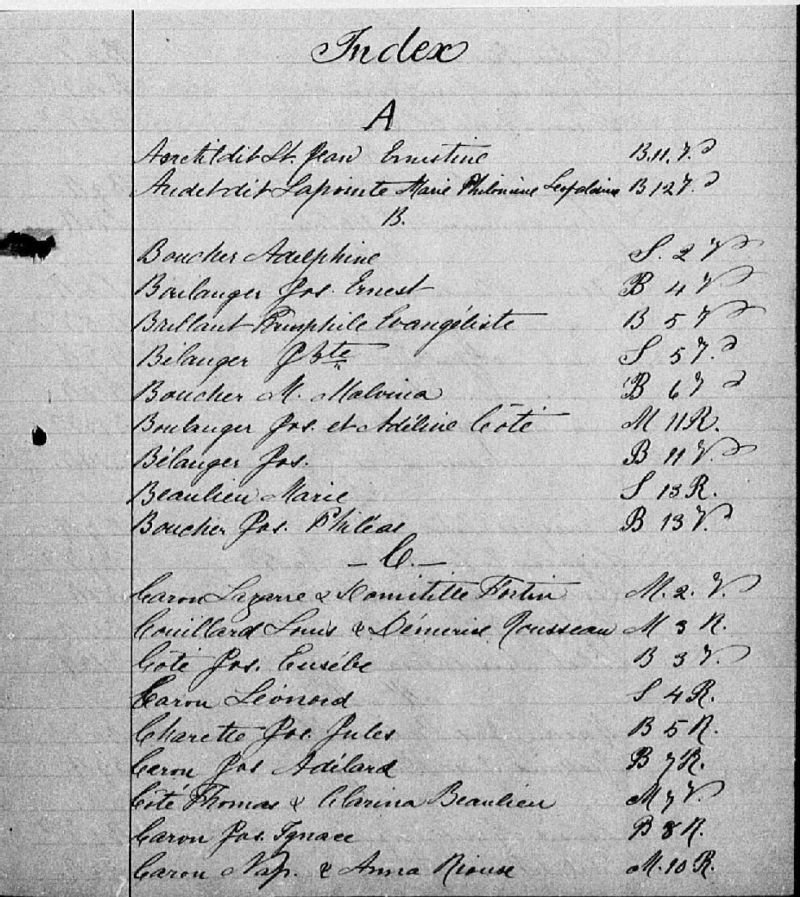 Index
A
dit St. Jean Ernestine B.11.V.
Audet dit Lapointe Marie Philomène B 12 V.
B.
Boucher Adelphine S. 2 V
Boulanger Jos. Ernest B 4 V
Brillant Pamphile Evangéliste B 5 V
Bélanger J Bte S 5 V.
Boucher M. Malvina B 6 V
Boulanger Jos. et Adéline Côté M 11 R.
Bélanger Jos. B 11 V.
Beaulieu Marie S 13 R.
Boucher Jos. Philéas B 13 V.
— C. —
Caron Lazarre & Domitille Fortin M. 2. V.
Couillard Louis & Démerise Rousseau M 3 R.
Côté Jos. Eusèbe B 3 V.
Caron Léonard S 4 R.
Charette Jos. Jules B 5 R.
Caron Jos Adélard B 7 R.
Côté Thomas & Clarina Beaulieu M 7 V
Caron Jos. Ignace B 8 R.
Caron Nap. & Anna Rioux M. 10 R.